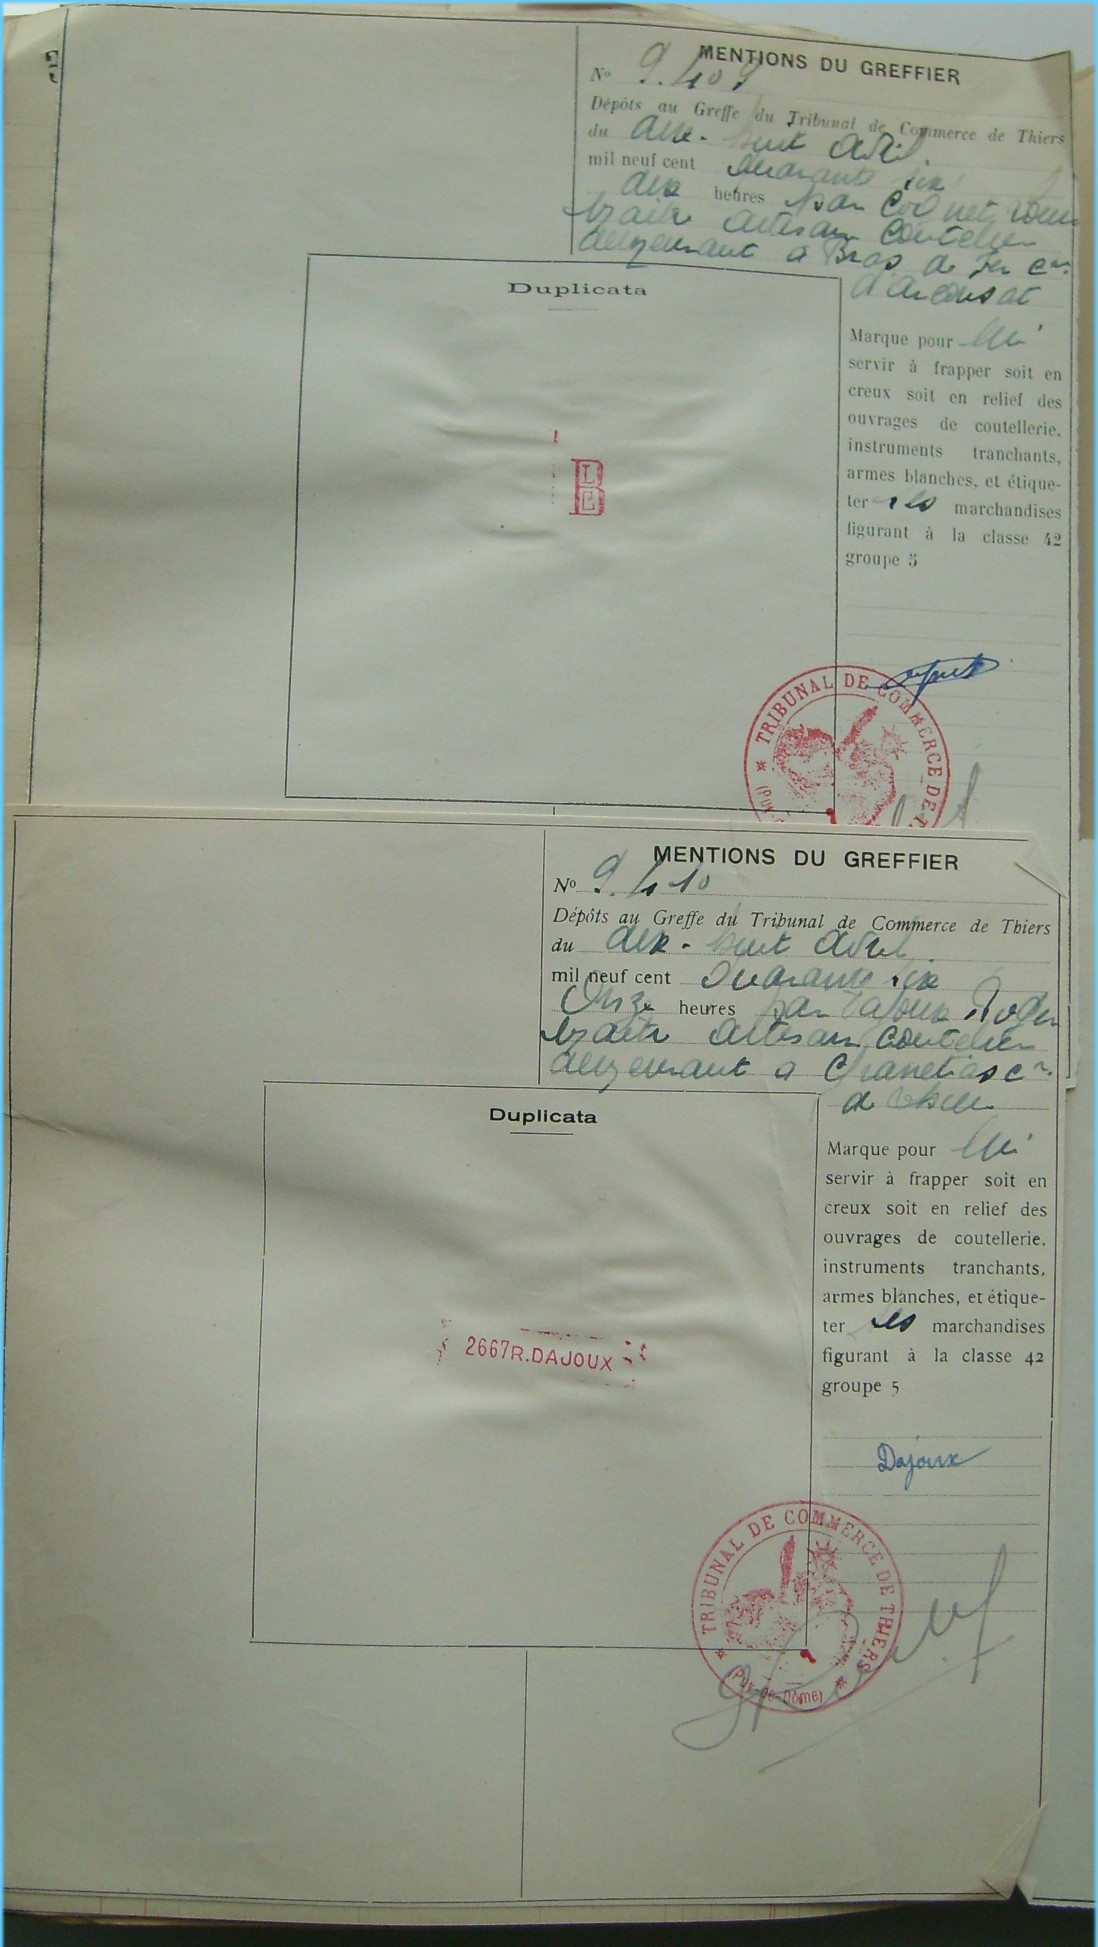 MENTIONS DU GREFFIER
Nº 9.409
Dépôts au Greffe du Tribunal de Commerce de Thiers
du dix-huit avril
mil neuf cent quarante six
dix heures par Coquet
artisan coutelier
demeurant a Bras de Fer cne
d'Arconsat
Duplicata
Marque pour lui
servir à frapper soit en
creux soit en relief des
ouvrages de coutellerie,
instruments tranchants,
armes blanches, et étique-
ter les marchandises
figurant à la classe 42
groupe 5
B
L
C
TRIBUNAL DE COMMERCE DE
MENTIONS DU GREFFIER
Nº 9.410
Dépôts au Greffe du Tribunal de Commerce de Thiers
du dix-huit avril
mil neuf cent quarante six
Onze heures par Dajoux Roger
artisan coutelier
demeurant a cne
de
Duplicata
Marque pour lui
servir à frapper soit en
creux soit en relief des
ouvrages de coutellerie,
instruments tranchants,
armes blanches, et étique-
ter les marchandises
figurant à la classe 42
groupe 5
2667 R.DAJOUX
Dajoux
TRIBUNAL DE COMMERCE DE THIERS
(Puy-de-Dôme)